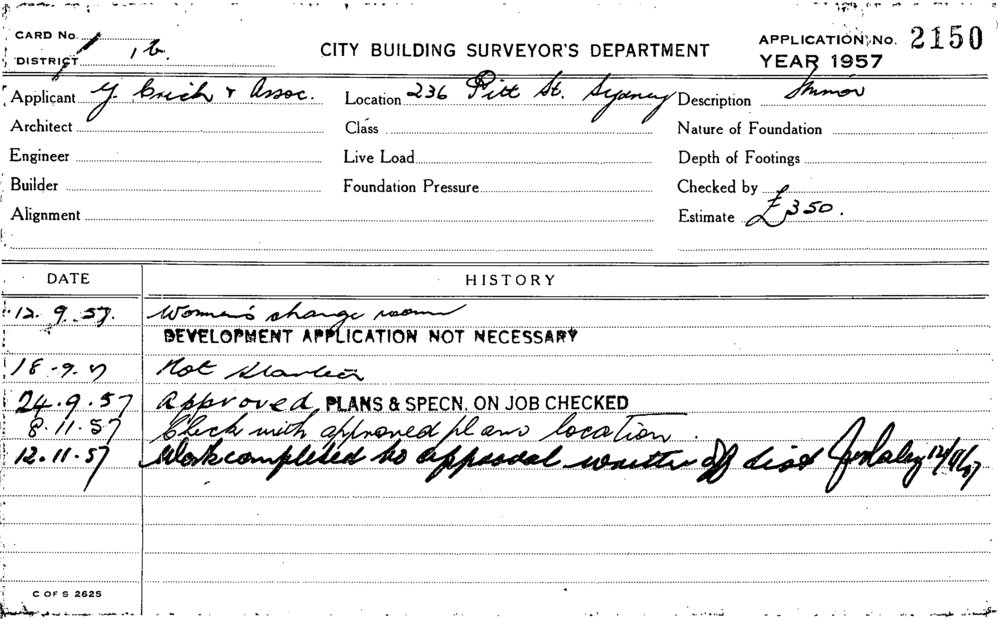 CARD No. 1
DISTRICT 1b.
CITY BUILDING SURVEYOR'S DEPARTMENT
APPLICATION No. 2150
YEAR 1957
Applicant Y. Erich & Assoc. Location 236 Pitt St. Sydney Description Minor
Architect Class Nature of Foundation
Engineer Live Load Depth of Footings
Builder Foundation Pressure Checked by
Alignment Estimate £350.
DATE HISTORY
12.9.57. Women's change room
DEVELOPMENT APPLICATION NOT NECESSARY
18-9-57 Not Started
24.9.57 Approved PLANS & SPECN. ON JOB CHECKED
8.11.57 Check with approved plans location.
12.11.57 Work completed to approval written off 12/11/57
C OF S 2625